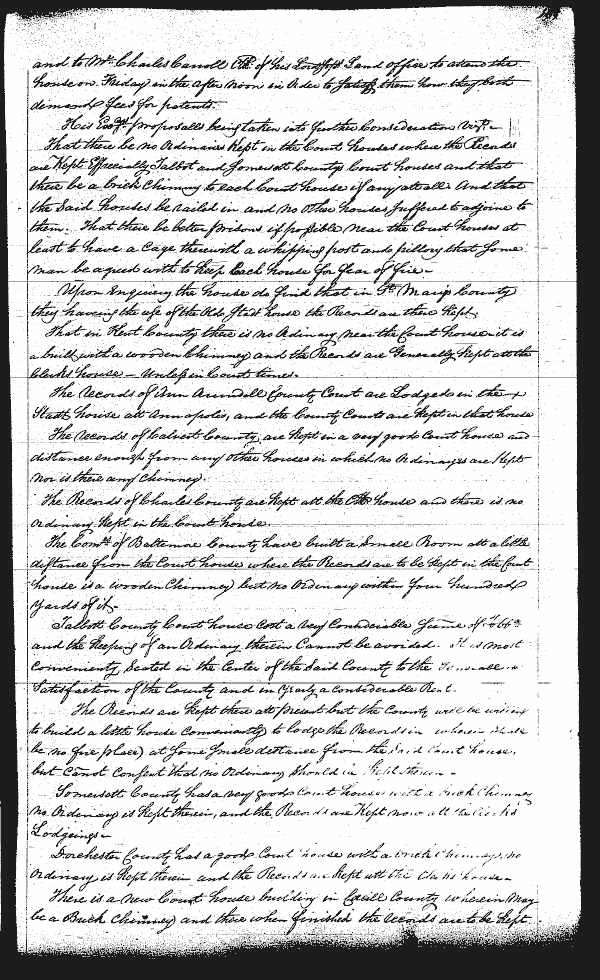 and to Mr. Charles Carroll Clk of his Lordships Land office to attend the
house on Friday in the after noon in Order to satisfy them how they both
demand fees for patents.
His Excys proposalls being taken into further Consideration vizt.
That there be no Ordinaries Kept in the Court houses where the Records
are Kept Especially Talbot and Somersett Countys Court houses and that
there be a brick Chimny to each Court house if any att all And that
the Said houses be railed in and no other houses suffered to adjoine to
them. That there be better prisons if possible near the Court houses at
least to have a Cage therewith a whipping post and pillory that some
man be agreed with to keep Each house for fear of fire.
Upon Enquiry the house do find that in St. Maries County
they having the use of the Old State house the Records are there Kept.
That in Kent County there is no Ordinary near the Court house it is
a built with a wooden Chimney and the Records are Generally kept att the
Clerks house - Unless in Court times.
The records of Ann Arundell County Court are Lodged in the
Stadt house att Annapolis, and the County Courts are Kept in that house
The records of Calvert County are kept in a very good Court house and
distance enough from any other houses in which no Ordinaryes are Kept
nor is there any Chimney.
The Records of Charles County are Kept att the Clk house and there is no
Ordinary kept in the Court house.
The Comrs of Baltimore County have built a Small Room att a little
distance from the Court house where the Records are to be Kept in the Court
house is a wooden Chimney but no Ordinary within four hundred
yards of it.
Talbott County Court house Cost a very Considerable Sume of Tobbo
and the keeping of an Ordinary therein Cannot be avoided. It is most
Conveniently Seated in the Center of the Said County to the Generall
Satisfaction of the County and in Yearly a Considerable Rent.
The Records are Kept there att present but the County will be willing
to build a little house Conveniently to lodge the Records in wherein shall
be no fire place) at some Small distance from the said Court house.
but Cannot Consent that no Ordinary should be Kept therein
Somersett County has a very good Court house with a brick Chimney
no Ordinary is Kept therein, and the Records are Kept now att the Clerks
Lodgeings
Dorchester County has a good Court house with a brick Chimney, no
Ordinary is Kept therein and the Records are Kept att the Clerks house
There is a new Court house building in Cecill County wherein May
be a Brick Chimney and there when finished the records are to be Kept